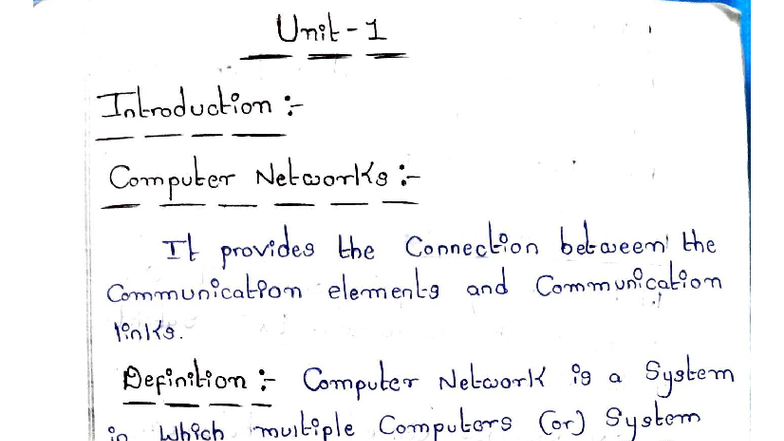 Unit-1
Introduction :-
Computer Networks :-
It provides the Connection between the
Communication elements and Communication
links.
Definition :- Computer Network is a System
in which multiple Computers (or) System